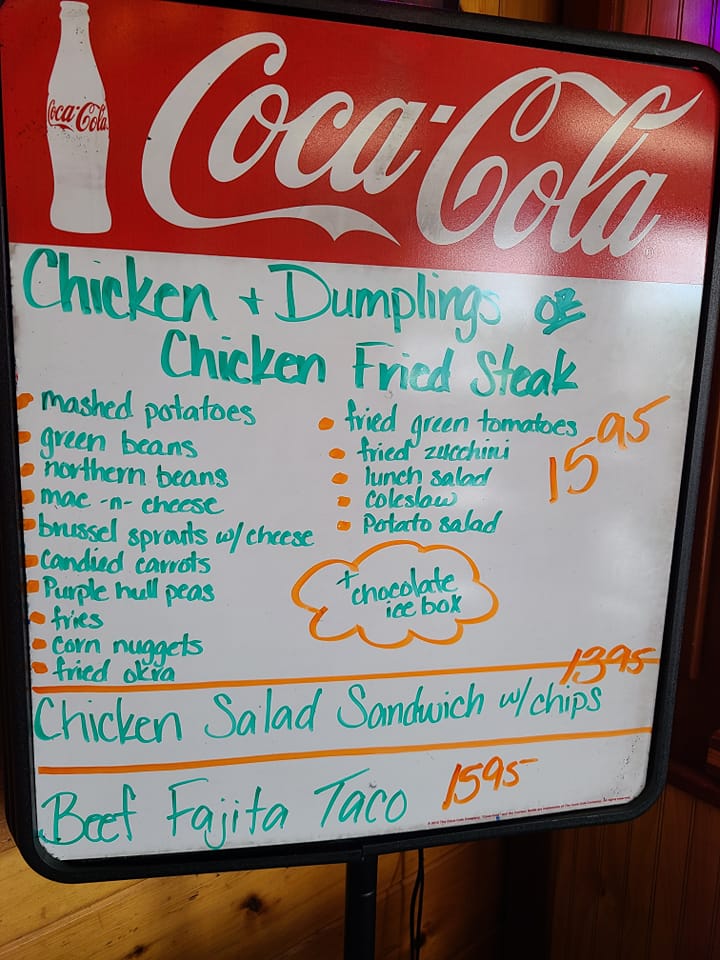 Coca-Cola
Coca-Cola
Chicken + Dumplings or
Chicken Fried Steak
15 95
• mashed potatoes
• green beans
• northern beans
• mac -n- cheese
• brussel sprouts w/ cheese
• candied carrots
• Purple hull peas
• fries
• corn nuggets
• fried okra
• fried green tomatoes
• fried zucchini
• lunch salad
• coleslaw
• Potato salad
+ chocolate
ice box
13 95
Chicken Salad Sandwich w/ chips
Beef Fajita Taco 15 95